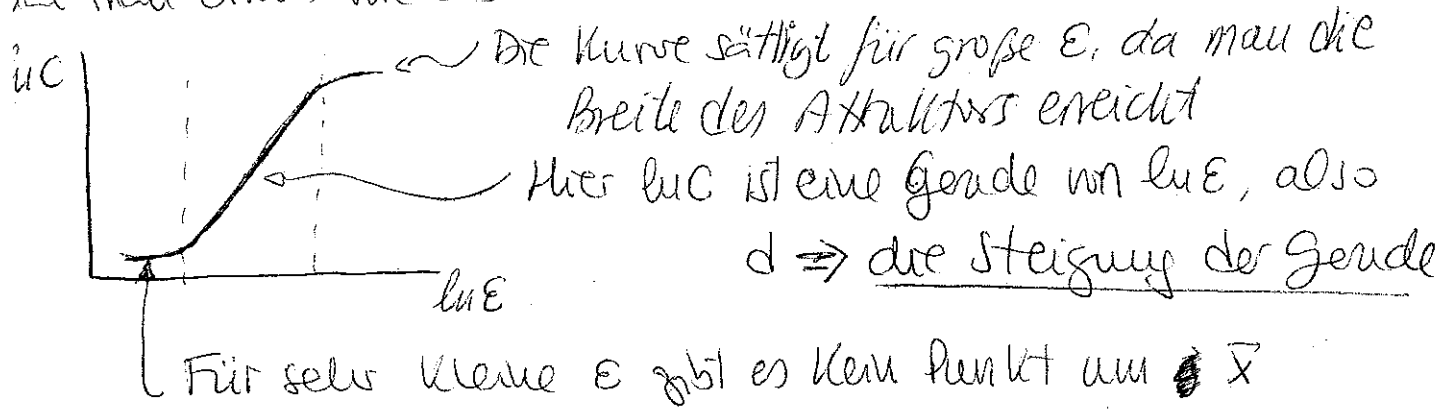 Die Kurve sättigt für große ε, da man die
lnC
Breite des Attraktors erreicht
Hier lnC ist eine Gerade von lnε, also
d ⇒ die Steigung der Gerade
lnε
Für sehr kleine ε gibt es kein Punkt um x̄